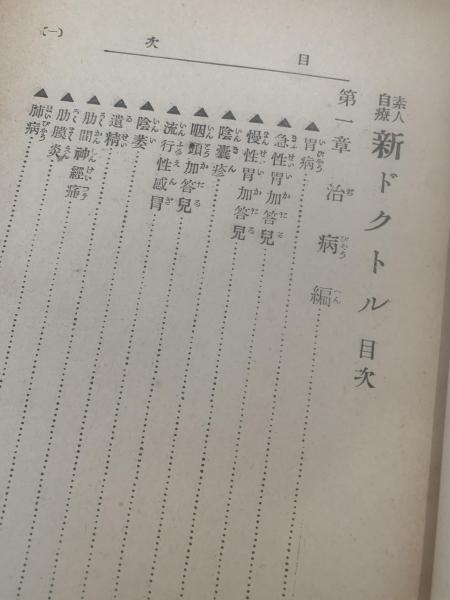 目次
(一)
素人自療 新ドクトル 目次
第一章 治病編
▲胃病
▲急性胃加答兒
▲慢性胃加答兒
▲陰嚢疹
▲咽頭加答兒
▲流行性感冒
▲陰萎
▲遺精
▲肋間神經痛
▲肋膜炎
▲肺病